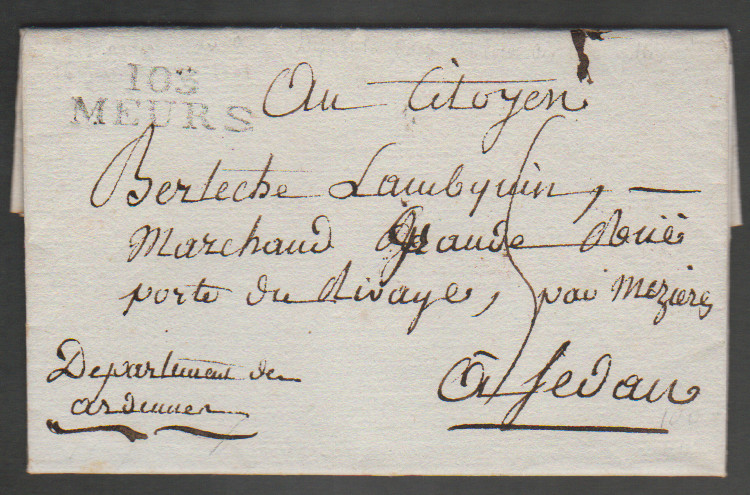 103
MEURS
Au Citoyen
Berteche Lambquin,
Marchand Grande Ruë
porte du Rivage, par Mezieres
A Sedan
Departement des
ardennes